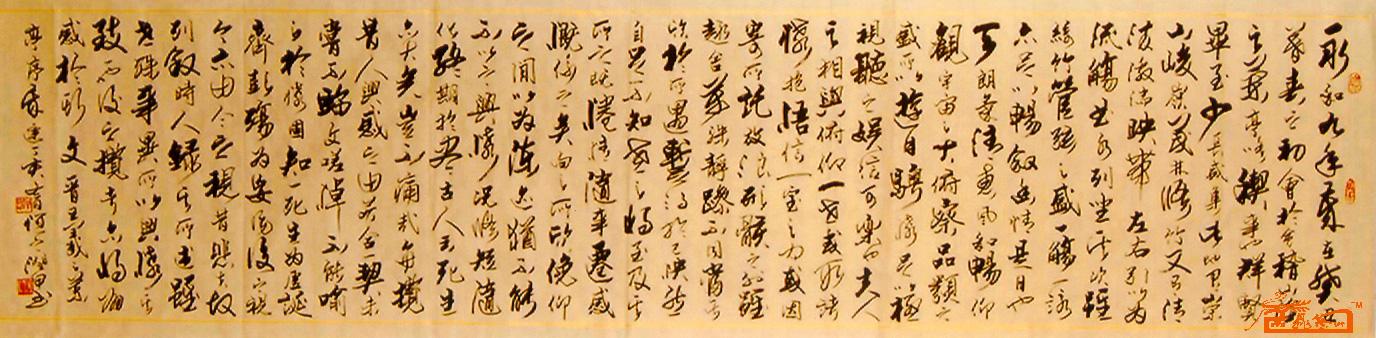 永和九年歲在癸丑
暮春之初會於會稽山陰
之蘭亭修禊事也群賢
畢至少長咸集此地有崇
山峻嶺茂林修竹又有清
流激湍映帶左右引以為
流觴曲水列坐其次雖無
絲竹管弦之盛一觴一詠
亦足以暢敘幽情是日也
天朗氣清惠風和暢仰
觀宇宙之大俯察品類之
盛所以遊目騁懷足以極
視聽之娛信可樂也夫人
之相與俯仰一世或取諸
懷抱悟言一室之內或因
寄所託放浪形骸之外雖
趣舍萬殊靜躁不同當其
欣於所遇暫得於己快然
自足不知老之將至及其
所之既倦情隨事遷感
慨係之矣向之所欣俛仰
之間以為陳迹猶不能
不以之興懷況修短隨
化終期於盡古人云死生
亦大矣豈不痛哉每攬
昔人興感之由若合一契未
嘗不臨文嗟悼不能喻
之於懷固知一死生為虛誕
齊彭殤為妄作後之視
今亦由今之視昔悲夫故
列敘時人錄其所述雖
世殊事異所以興懷其
致一也後之攬者亦將有
感於斯文晉王羲之蘭
亭序